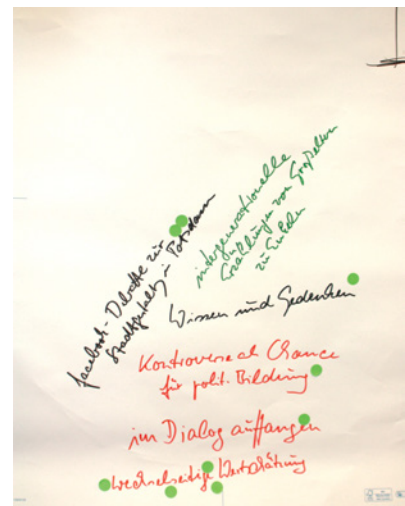 facebook-Debatte zur
Stadtgestalt in Potsdam
intergenerationelle
Erzählungen von Großeltern
zu Enkeln
Wissen und Gedenken
Kontroverse als Chance
für polit. Bildung
im Dialog auffangen
wechselseitige Wertschätzung